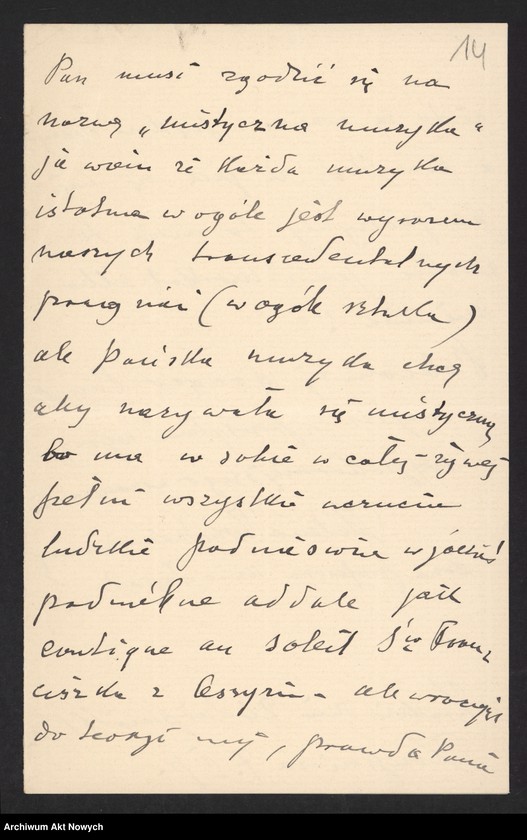 14
Pan musi zgodzić się na
nazwę „mistyczna muzyka"
ja wiem że każda muzyka
istotna w ogóle jest wyrazem
naszych transcedentalnych
pragnień (w ogóle sztuka)
ale Pańska muzyka chcę
aby nazywała się mistyczną
bo ma w sobie w całej żywej
pełni wszystkie uczucia
ludzkie podniesione w jakieś
podniebne oddale jak
cantique au soleil Św. Fran
ciszka z Assyżu – ale wracając
do teorji mej, prawda Panu
Archiwum Akt Nowych